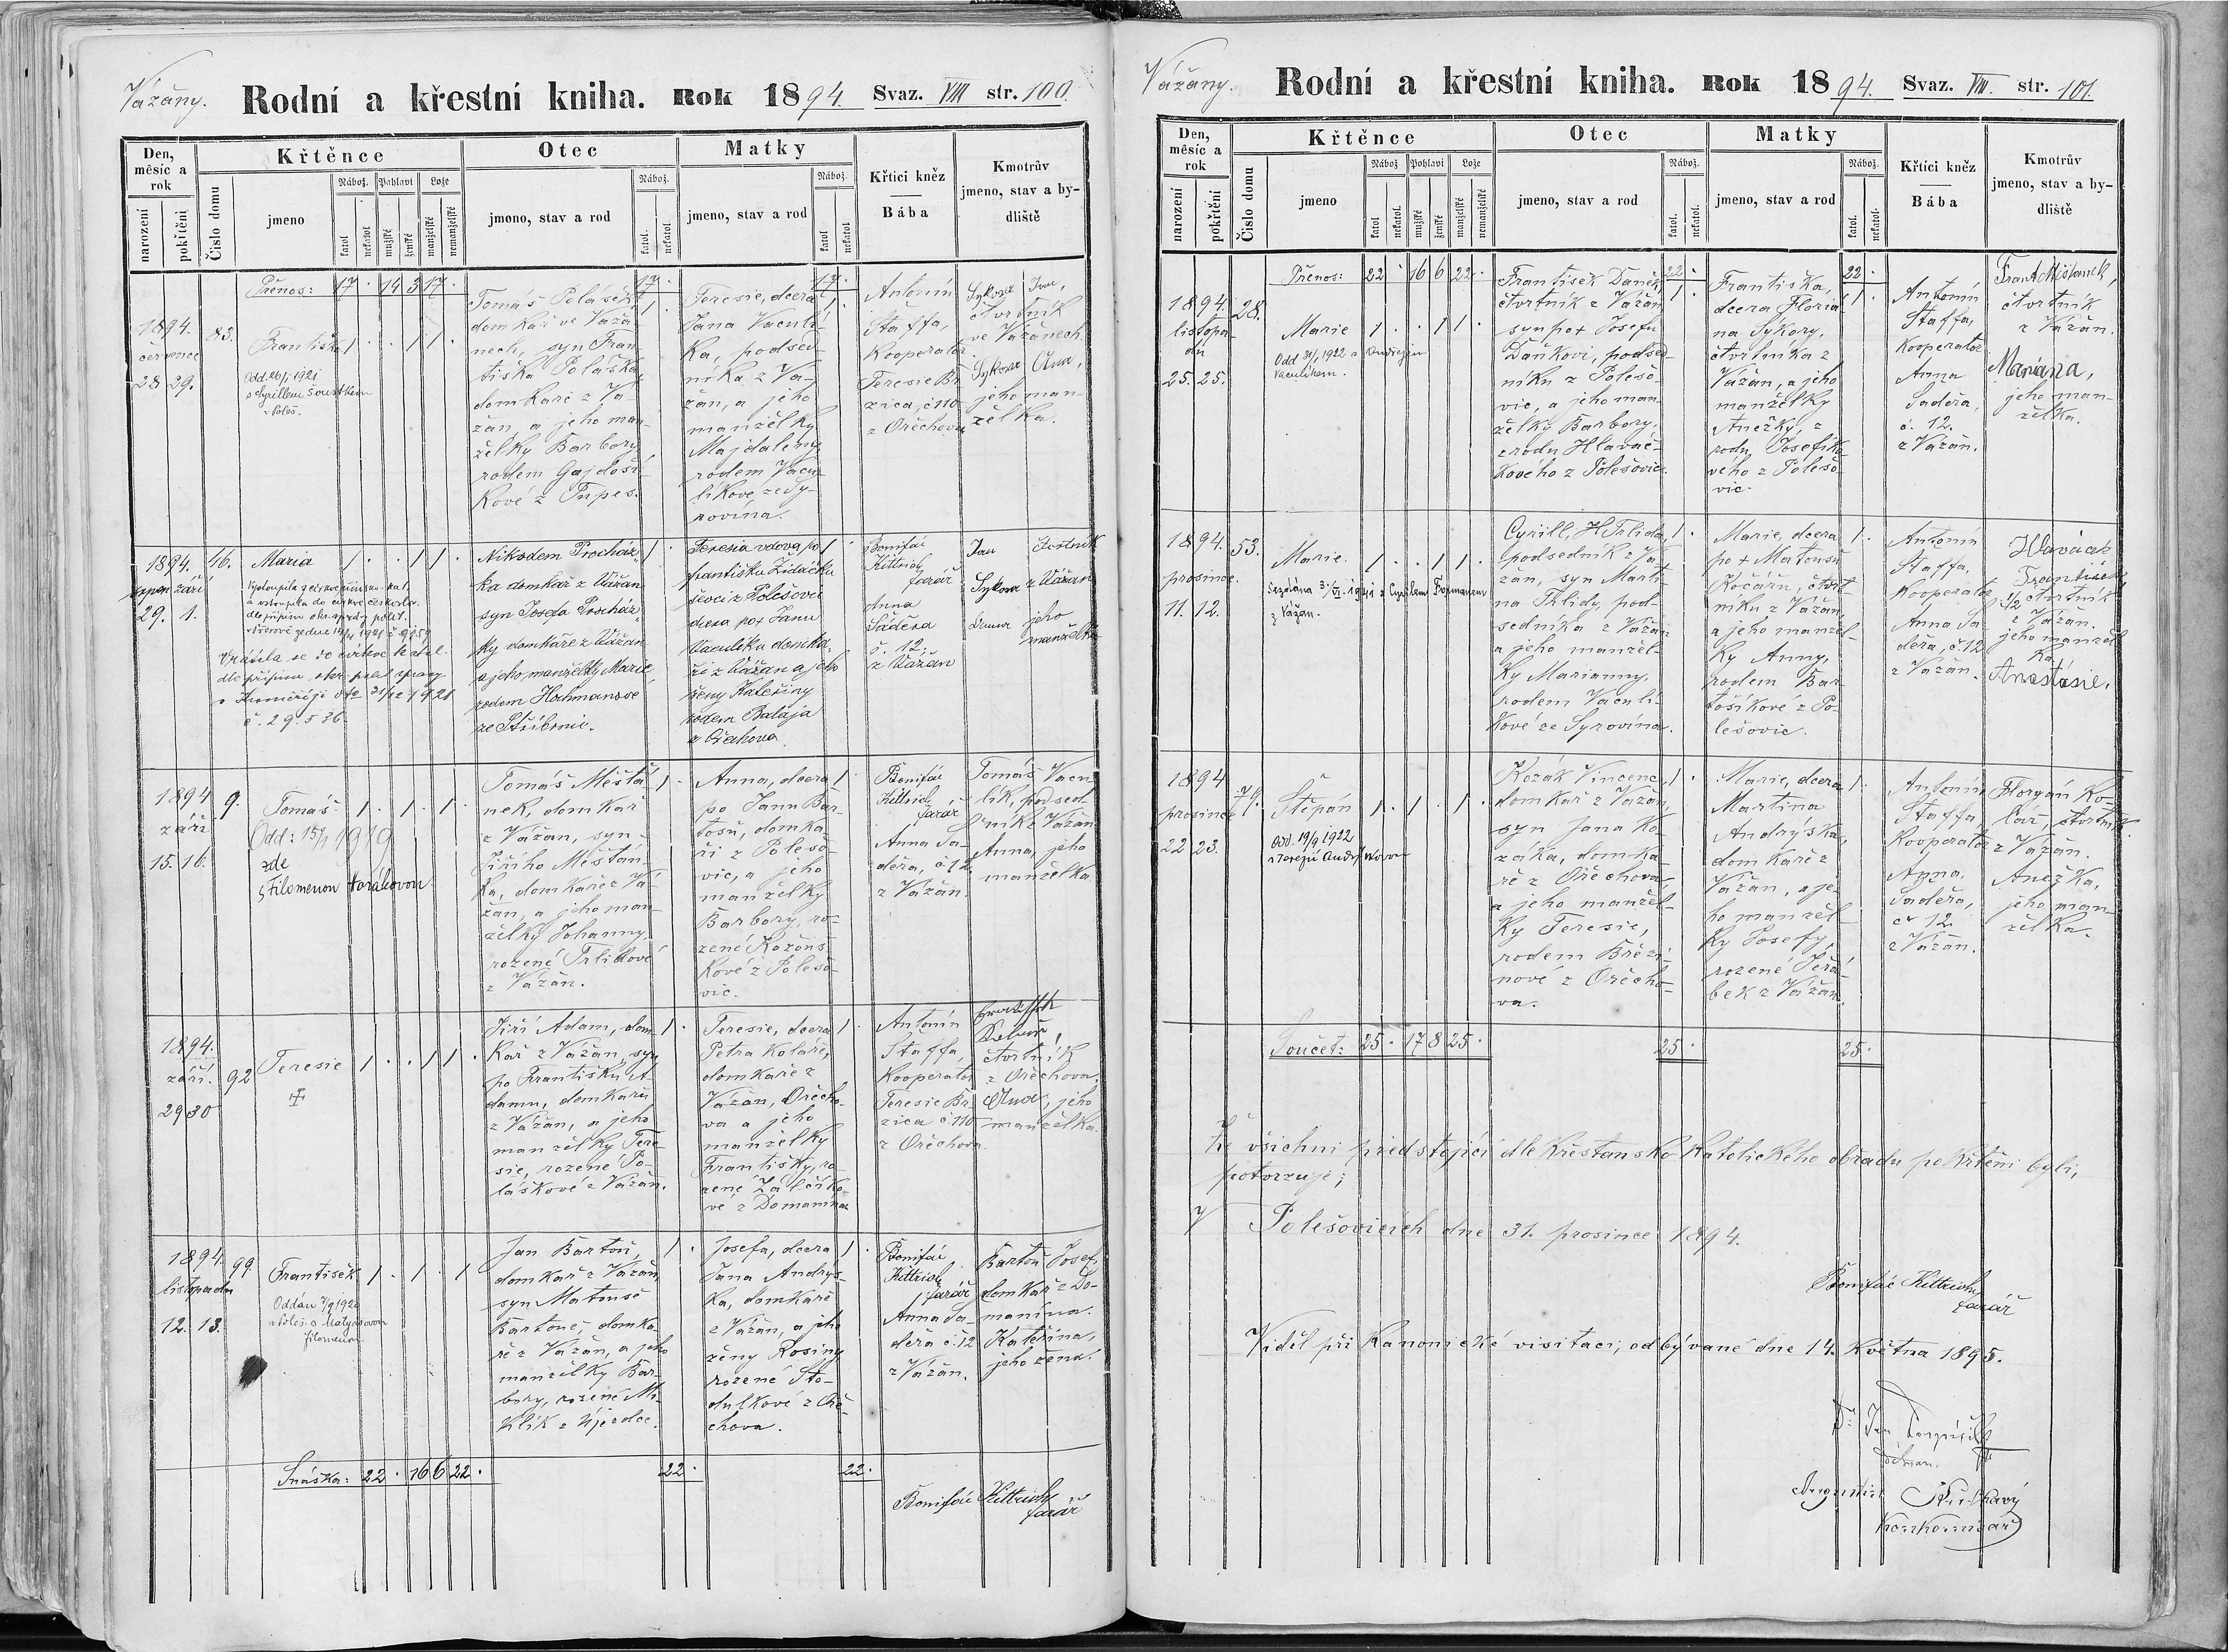 Vážany. Rodní a křestní kniha. Rok 1894. Svaz. VIII str. 100.
Den, měsíc a rok
narození
pokřtění
Číslo domu
Křtěnce
jmeno
Nábož.
katol
nekatol
Pohlaví
mužské
ženské
Lože
manželské
nemanželské
Otec
jmeno, stav a rod
Nábož.
katol.
nekatol.
Matky
jmeno, stav a rod
Nábož.
katol
nekatol.
Křtící kněz
Bába
Kmotrův
jmeno, stav a by-
dliště
Přenos: 17 · 14 3 17 · 17 · 17 ·
1894.
července
28 29.
83.
Františka 1 · · 1 1 ·
Odd. 26/1 1921
s Cyrillem Šoustkem
v Poleš.
Tomáš Polášek, 1 ·
domkař ve Váža-
nech, syn Fran-
tiška Poláška,
domkaře z Vá-
žan, a jeho man-
želky Barbory
rodem Gajdoší-
kové z Tupes.
Teresie, dcera 1 ·
Jana Vaculí-
ka, podsed-
níka z Vá-
žan, a jeho
manželky
Majdaleny
rodem Vacu-
líkové ze Sy-
rovína.
Antonín
Staffa,
Kooperator
Teresie Br-
zica, č. 110
z Ořechova
Sykora Jan,
čtvrtník
ve Vážanech
Sykora Anna,
jeho man-
želka.
1894.
srpen září
29. 1.
46.
Maria 1 · · 1 1 ·
Vystoupila z církve římsko-kat.
a vstoupila do církve českoslov.
dle přípisu okr. správy polit.
Vrátila se do církve katol.
dle přípisu okr. polit. správy
č. 29.536
Nikodem Procház- 1 ·
ka domkař z Vážan
syn Josefa Procház-
ky domkaře z Vážan
a jeho manželky Marie,
rodem Hochmanove
ze Stříbrnic.
Teresia vdova po 1 ·
Františku Židáčku
ševci z Polešovic
dcera po + Janu
Vaculíku domka-
ři z Vážan a jeho
ženy Kateřiny
rodem Balaja
z Ořechova.
Bonifác
Kittrich
farář
Anna
Saděra
č. 12.
z Vážan
Jan čtvrtník
Sykora z Vážan
jeho
manželka
1894
září
15. 16.
9.
Tomáš 1 · 1 · 1 ·
Odd: 15/1 1919
zde
s Filomenou Horákovou
Tomáš Měšťá- 1 ·
nek, domkař
z Vážan, syn
Jiřího Měšťán-
ka, domkaře z Vá-
žan, a jeho man-
želky Johanny,
rozené Trlidové
z Vážan.
Anna, dcera 1 ·
po Janu Bar-
tošu, domka-
ři z Polešo-
vic, a jeho
manželky
Barbory, ro-
zené Kožous-
kové z Polešo-
vic.
Bonifác
Kittrich
farář
Anna Sa-
děra, č. 12
z Vážan.
Tomáš Vacu-
lík, podsed-
ník z Vážan
Anna, jeho
manželka
1894.
září.
29 30
92
Teresie 1 · · 1 1 ·
Jiří Adam, dom- 1 ·
kař z Vážan, syn
po Františku A-
damu, domkaři
z Vážan, a jeho
manželky Tere-
sie, rozené Po-
láškové z Vážan.
Teresie, dcera 1 ·
Petra Koláře,
domkaře z
Vážan, Ořecho-
va a jeho
manželky
Františky, ro-
zené Záleško-
vé z Domanína
Antonín
Staffa,
Kooperator
Teresie Br-
zica č. 110
z Ořechova.
čtvrtník
z Ořechova.
Anna, jeho
manželka.
1894.
listopadu
12. 13.
99.
František 1 · 1 · 1
Oddán 7/9 1920
v Poleš. s Matyášovou
Filomenou.
Jan Bartoň, 1 ·
domkař z Vážan,
syn Matouše
Bartoně, domka-
ře z Vážan, a jeho
manželky Bar-
bory, rozené Mi-
klík z Újezdce.
Josefa, dcera 1 ·
Jana Andrýs-
ka, domkaře
z Vážan, a jeho
ženy Rosiny
rozené Sto-
dulkové z Oře-
chova.
Bonifác
Kittrich
farář
Anna Sa-
děra č. 12
z Vážan.
Bartoň Josef,
domkař z Do-
manína.
Kateřina,
jeho žena.
Snáška: 22 · 16 6 22 · 22 · 22 ·
Bonifác Kittrich
farář
Vážany. Rodní a křestní kniha. Rok 1894. Svaz. VIII. str. 101.
Den, měsíc a rok
narození
pokřtění
Číslo domu
Křtěnce
jmeno
Nábož
katol
nekatol.
Pohlaví
mužské
ženské
Lože
manželské
nemanželské
Otec
jmeno, stav a rod
Nábož.
katol.
nekatol.
Matky
jmeno, stav a rod
Nábož.
katol.
nekatol.
Křtící kněz
Bába
Kmotrův
jmeno, stav a by-
dliště
Přenos: 22 · 16 6 22 · 22 · 22 ·
1894.
listopa-
du
25. 25.
28.
Marie 1 · · 1 1 ·
Odd 31/1 1922 s Ondřejem
Vaculíkem.
František Daněk, 1 ·
čtvrtník z Vážan
syn po + Josefu
Daňkovi, podsed-
níku z Polešo-
vic, a jeho man-
želky Barbory,
z rodu Hlaváč-
kového z Polešovic.
Františka, 1 ·
dcera Floriá-
na Sýkory,
čtvrtníka z
Vážan, a jeho
manželky
Anežky, z
rodu Josefíko-
vého z Polešo-
vic.
Antonín
Staffa,
Kooperator
Anna
Saděra,
č. 12.
z Vážan.
Frant. Mišťanek,
čtvrtník
z Vážan.
Mariana,
jeho man-
želka.
1894.
prosince.
11. 12.
53.
Marie. 1 · · 1 1 ·
z Vážan.
Cyrill, H Trlida, 1 ·
podsedník z Vá-
žan, syn Marti-
na Trlidy, pod-
sedníka z Vážan
a jeho manžel-
ky Marianny,
rodem Vaculí-
kové ze Syrovína.
Marie, dcera 1 ·
po + Matouši
Kočáru, čtvrt-
níku z Vážan,
a jeho manžel-
ky Anny,
rodem Bar-
tošíkové z Po-
lešovic.
Antonín
Staffa,
Kooperator
Anna Sa-
děra, č. 12
z Vážan.
Hlaváček
František
1/2 čtvrtník
z Vážan.
jeho manžel-
ka
Anastásie.
1894
prosince
22 23.
71.
Štěpán 1 · 1 · 1 ·
Odd. 19/9 1922
s Terezií Andrýskovou
Kozák Vincenc, 1 ·
domkař z Vážan,
syn Jana Ko-
záka, domka-
ře z Ořechova,
a jeho manžel-
ky Teresie,
rodem Břézi-
nové z Ořecho-
va.
Marie, dcera 1 ·
Martina
Andrýska,
domkaře z
Vážan, a je-
ho manžel-
ky Josefy,
rozené Jeřá-
bek z Vážan.
Antonín
Staffa,
Kooperator
Anna
Saděra,
č. 12
z Vážan.
Floryán Ko-
lář, čtvrtník
z Vážan.
Anežka,
jeho man-
želka.
Součet: 25 · 17 8 25 · 25 · 25 ·
Že všichni předstojící dle křesťansko-katolického obřadu pokřtěni byli,
potvrzuje;
V Polešovicích dne 31. prosince 1894.
Bonifác Kittrich
farář
Viděl při kanonické visitaci, odbývané dne 14. května 1895.
Dr. Jan Pospíšil
děkan.